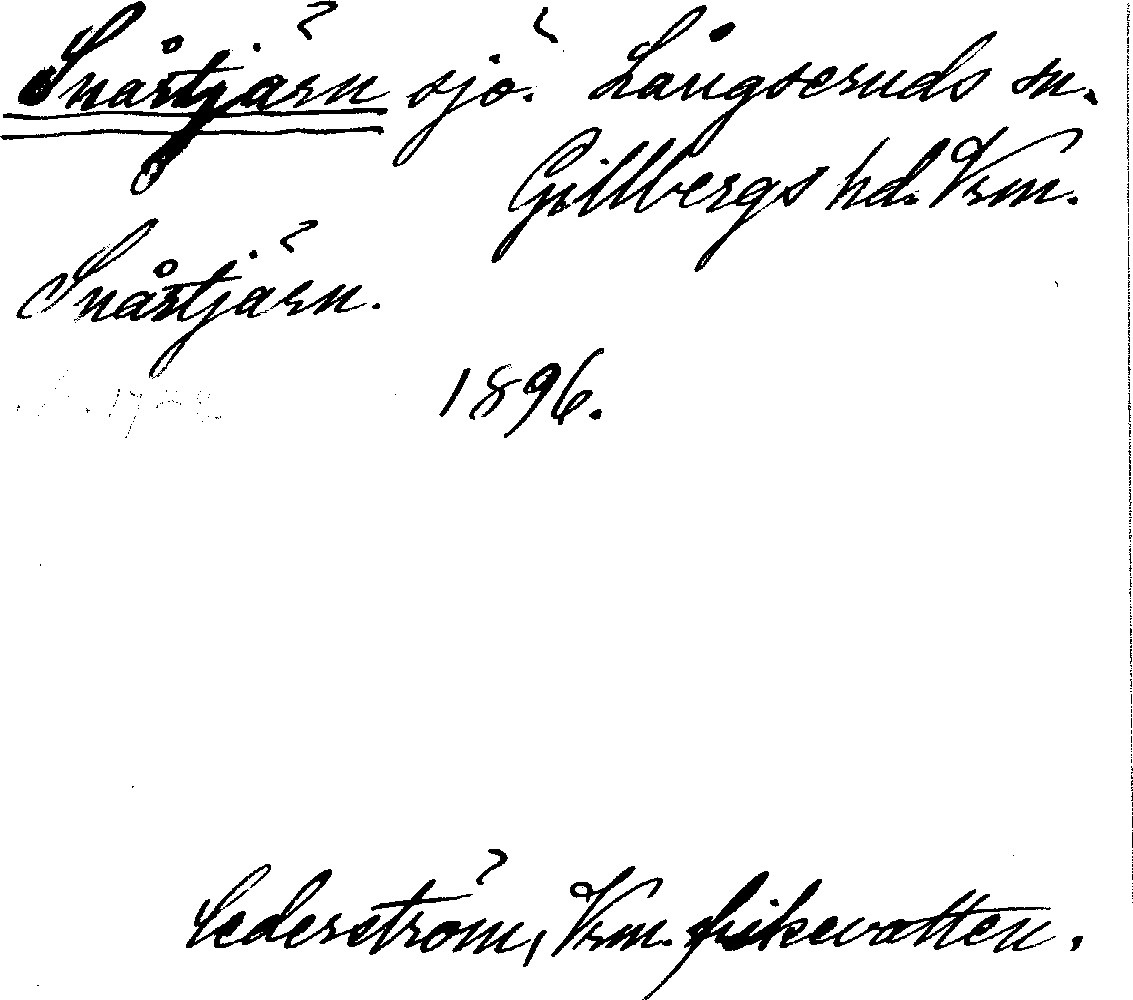 Snårtjärn sjö. Långseruds sn.
Gillbergs hd. Vrm.
Snårtjärn.
1896.
Cederström, Vrm. fiskevatten.